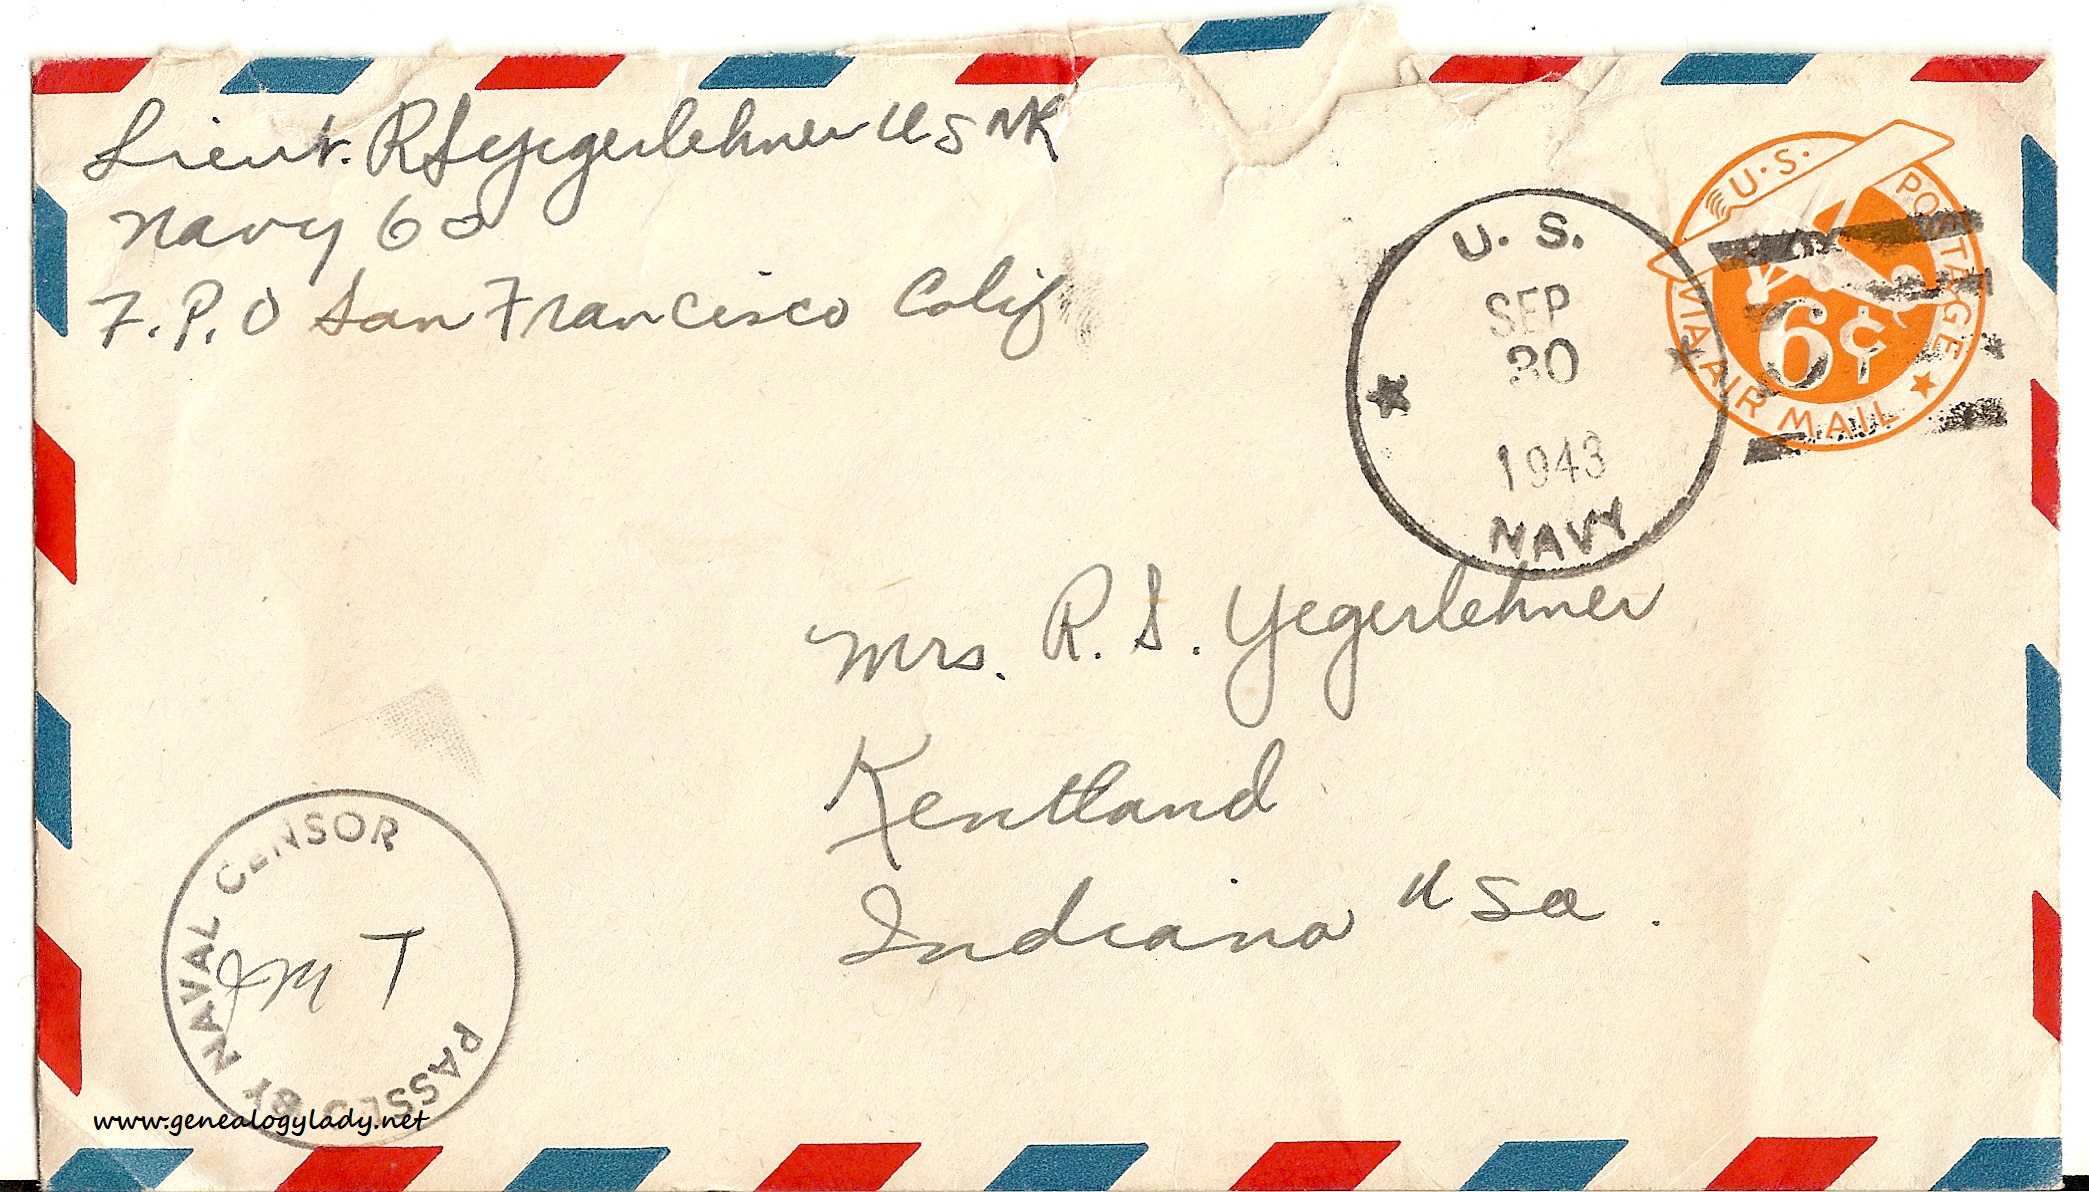 Lieut. R S Yegerlehner USNR
Navy 60
F.P.O San Francisco Calif
U.S. POSTAGE
VIA AIR MAIL
6¢
U.S.
SEP
30
1943
NAVY
Mrs. R. S. Yegerlehner
Kentland
Indiana USA.
PASSED BY NAVAL CENSOR
JMT
www.genealogylady.net